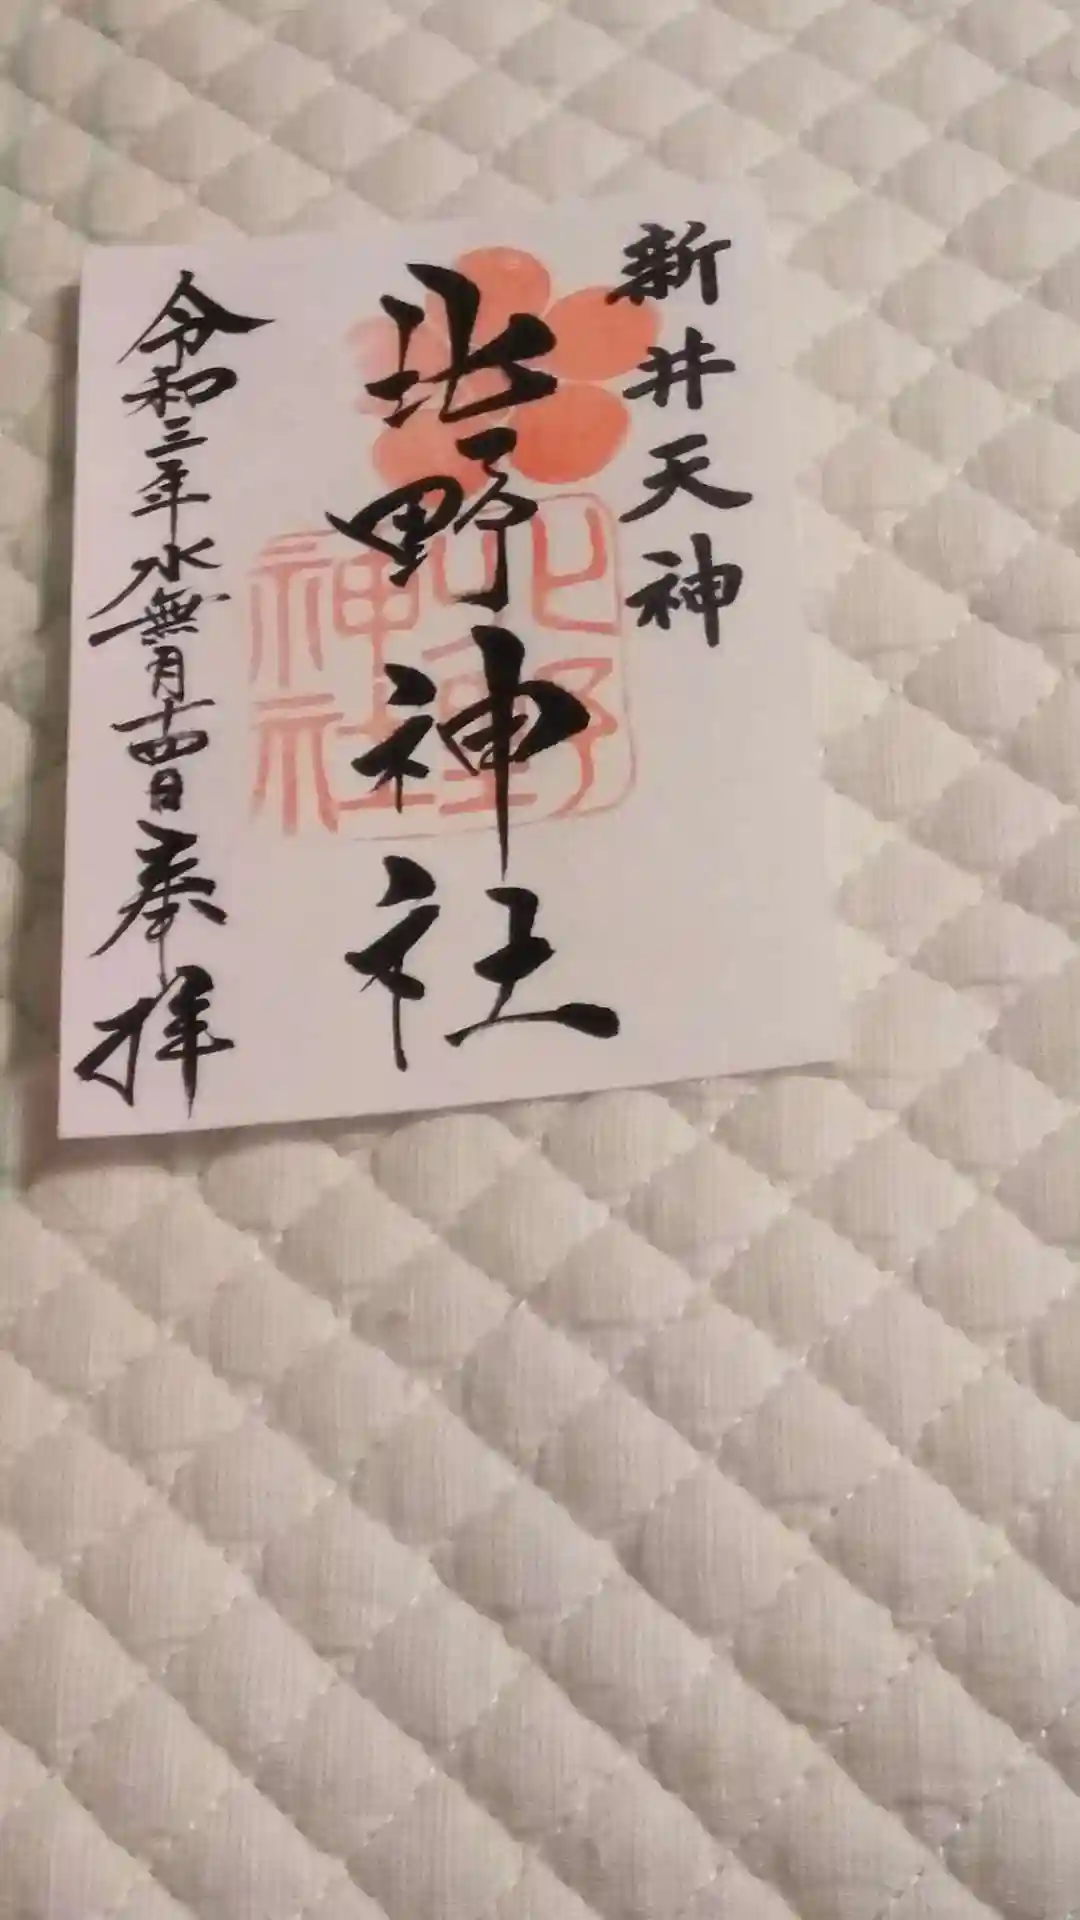 新井天神
北野神社
北野
神社
令和三年水無月十四日奉拝